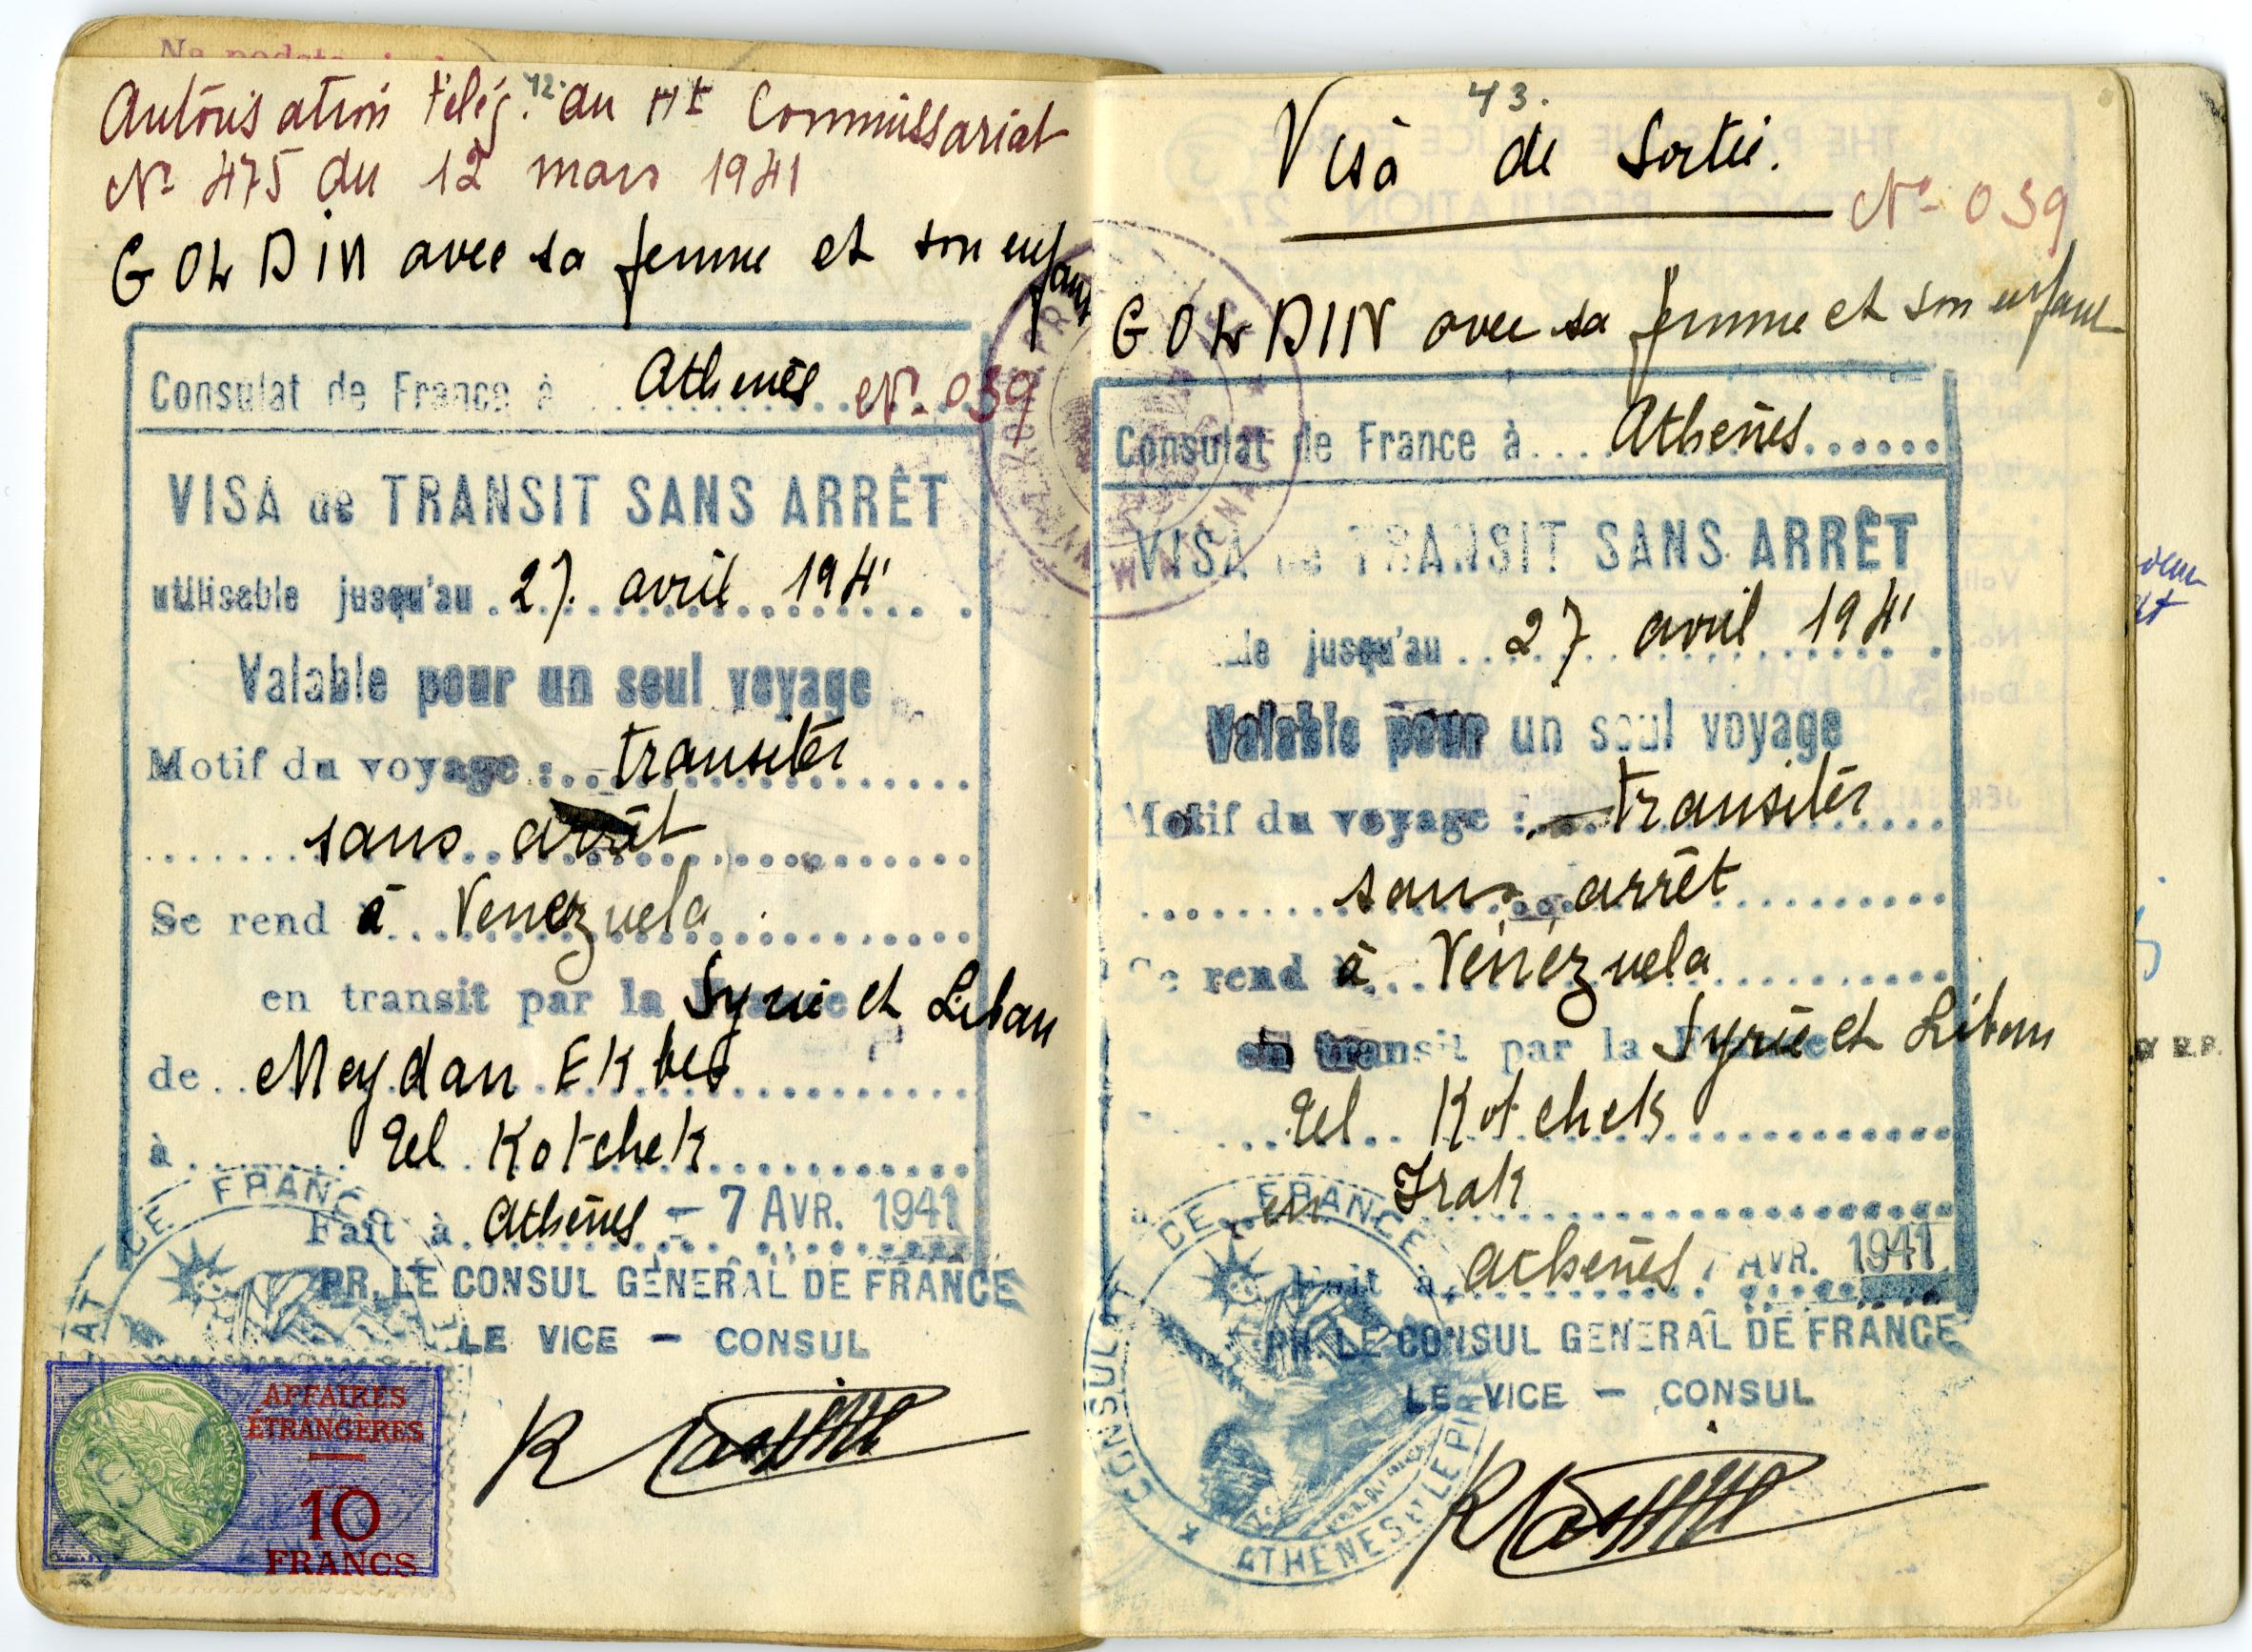 42.
Autorisation télég. du Ht Commissariat
No 475 du 12 mars 1941
GOLDIN avec sa femme et son enfant
Consulat de France à Athènes No 039
VISA de TRANSIT SANS ARRÊT
utilisable jusqu'au 27 avril 1941
Valable pour un seul voyage
Motif du voyage : transiter
sans arrêt
Se rend à Venezuela
en transit par la Syrie et Liban
de Meydan Ekbes
à Tel Kotchek
Fait à Athènes - 7 AVR. 1941
PR. LE CONSUL GENERAL DE FRANCE
LE VICE - CONSUL
AFFAIRES
ÉTRANGÈRES
10
FRANCS
43.
Visa de Sortie.
No 039
GOLDIN avec sa femme et son enfant
Consulat de France à Athènes
VISA de TRANSIT SANS ARRÊT
jusqu'au 27 avril 1941
Valable pour un seul voyage
Motif du voyage : transiter
sans arrêt
Se rend à Vénézuela
en transit par la Syrie et Liban
Tel Kotchek
en Irak
Fait à Athènes 7 AVR. 1941
PR. LE CONSUL GENERAL DE FRANCE
LE VICE - CONSUL
CONSULAT DE FRANCE
ATHENES ET LE PIREE